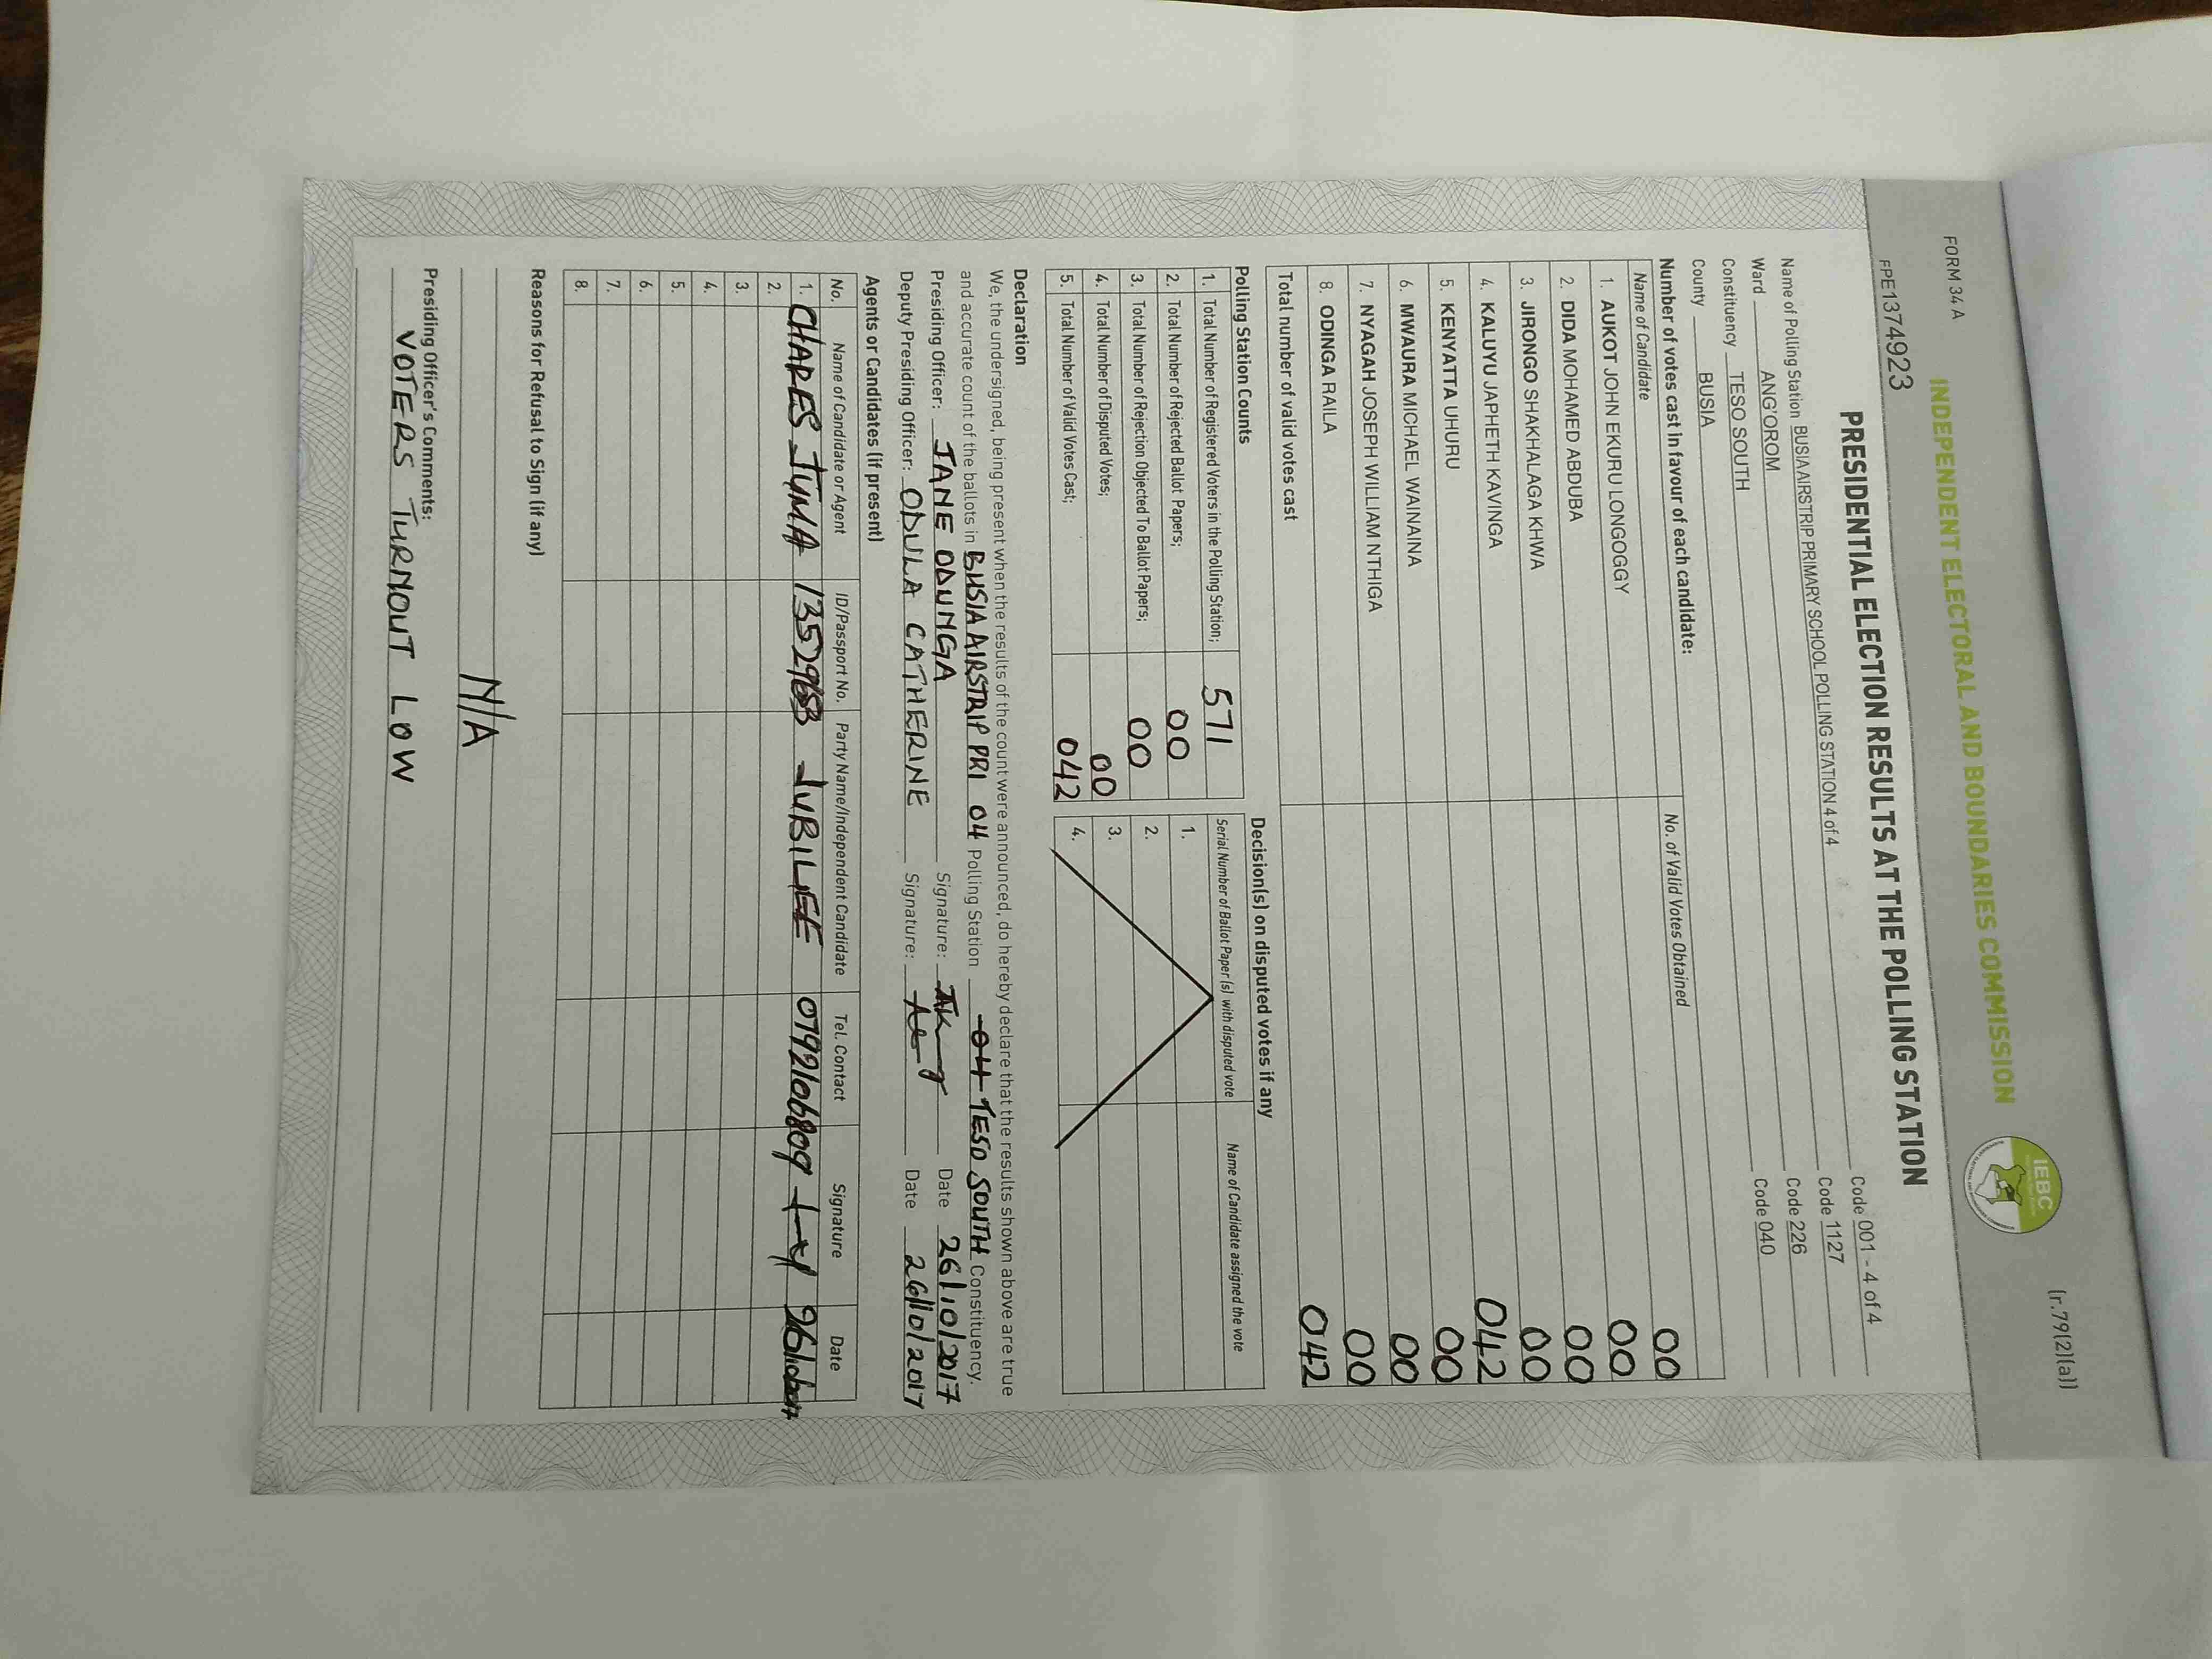 FORM 34 A
(r.79(2)(a))
INDEPENDENT ELECTORAL AND BOUNDARIES COMMISSION
IEBC
FPE1374923
PRESIDENTIAL ELECTION RESULTS AT THE POLLING STATION
Name of Polling Station BUSIA AIRSTRIP PRIMARY SCHOOL POLLING STATION 4 of 4 Code 001 - 4 of 4
Ward ANG'OROM Code 1127
Constituency TESO SOUTH Code 226
County BUSIA Code 040
Number of votes cast in favour of each candidate:
Name of Candidate No. of Valid Votes Obtained
1. AUKOT JOHN EKURU LONGOGGY 00
2. DIDA MOHAMED ABDUBA 00
3. JIRONGO SHAKHALAGA KHWA 00
4. KALUYU JAPHETH KAVINGA 00
5. KENYATTA UHURU 042
6. MWAURA MICHAEL WAINAINA 00
7. NYAGAH JOSEPH WILLIAM NTHIGA 00
8. ODINGA RAILA 00
Total number of valid votes cast 042
Polling Station Counts
1. Total Number of Registered Voters in the Polling Station; 571
2. Total Number of Rejected Ballot Papers; 00
3. Total Number of Rejection Objected To Ballot Papers; 00
4. Total Number of Disputed Votes; 00
5. Total Number of Valid Votes Cast; 042
Decision(s) on disputed votes if any
Serial Number of Ballot Paper(s) with disputed vote Name of Candidate assigned the vote
1.
2.
3.
4.
Declaration
We, the undersigned, being present when the results of the count were announced, do hereby declare that the results shown above are true
and accurate count of the ballots in BUSIA AIRSTRIP PRI 04 Polling Station 04 TESO SOUTH Constituency.
Presiding Officer: JANE ODUNGA Signature: Date 26/10/2017
Deputy Presiding Officer: ODULA CATHERINE Signature: Date 26/10/2017
Agents or Candidates (if present)
No. Name of Candidate or Agent ID/Passport No. Party Name/Independent Candidate Tel. Contact Signature Date
1. CHARES JUMA JUBILEE 0792106809 26/10/2017
2.
3.
4.
5.
6.
7.
8.
Reasons for Refusal to Sign (if any)
N/A
Presiding Officer's Comments:
VOTERS TURNOUT LOW